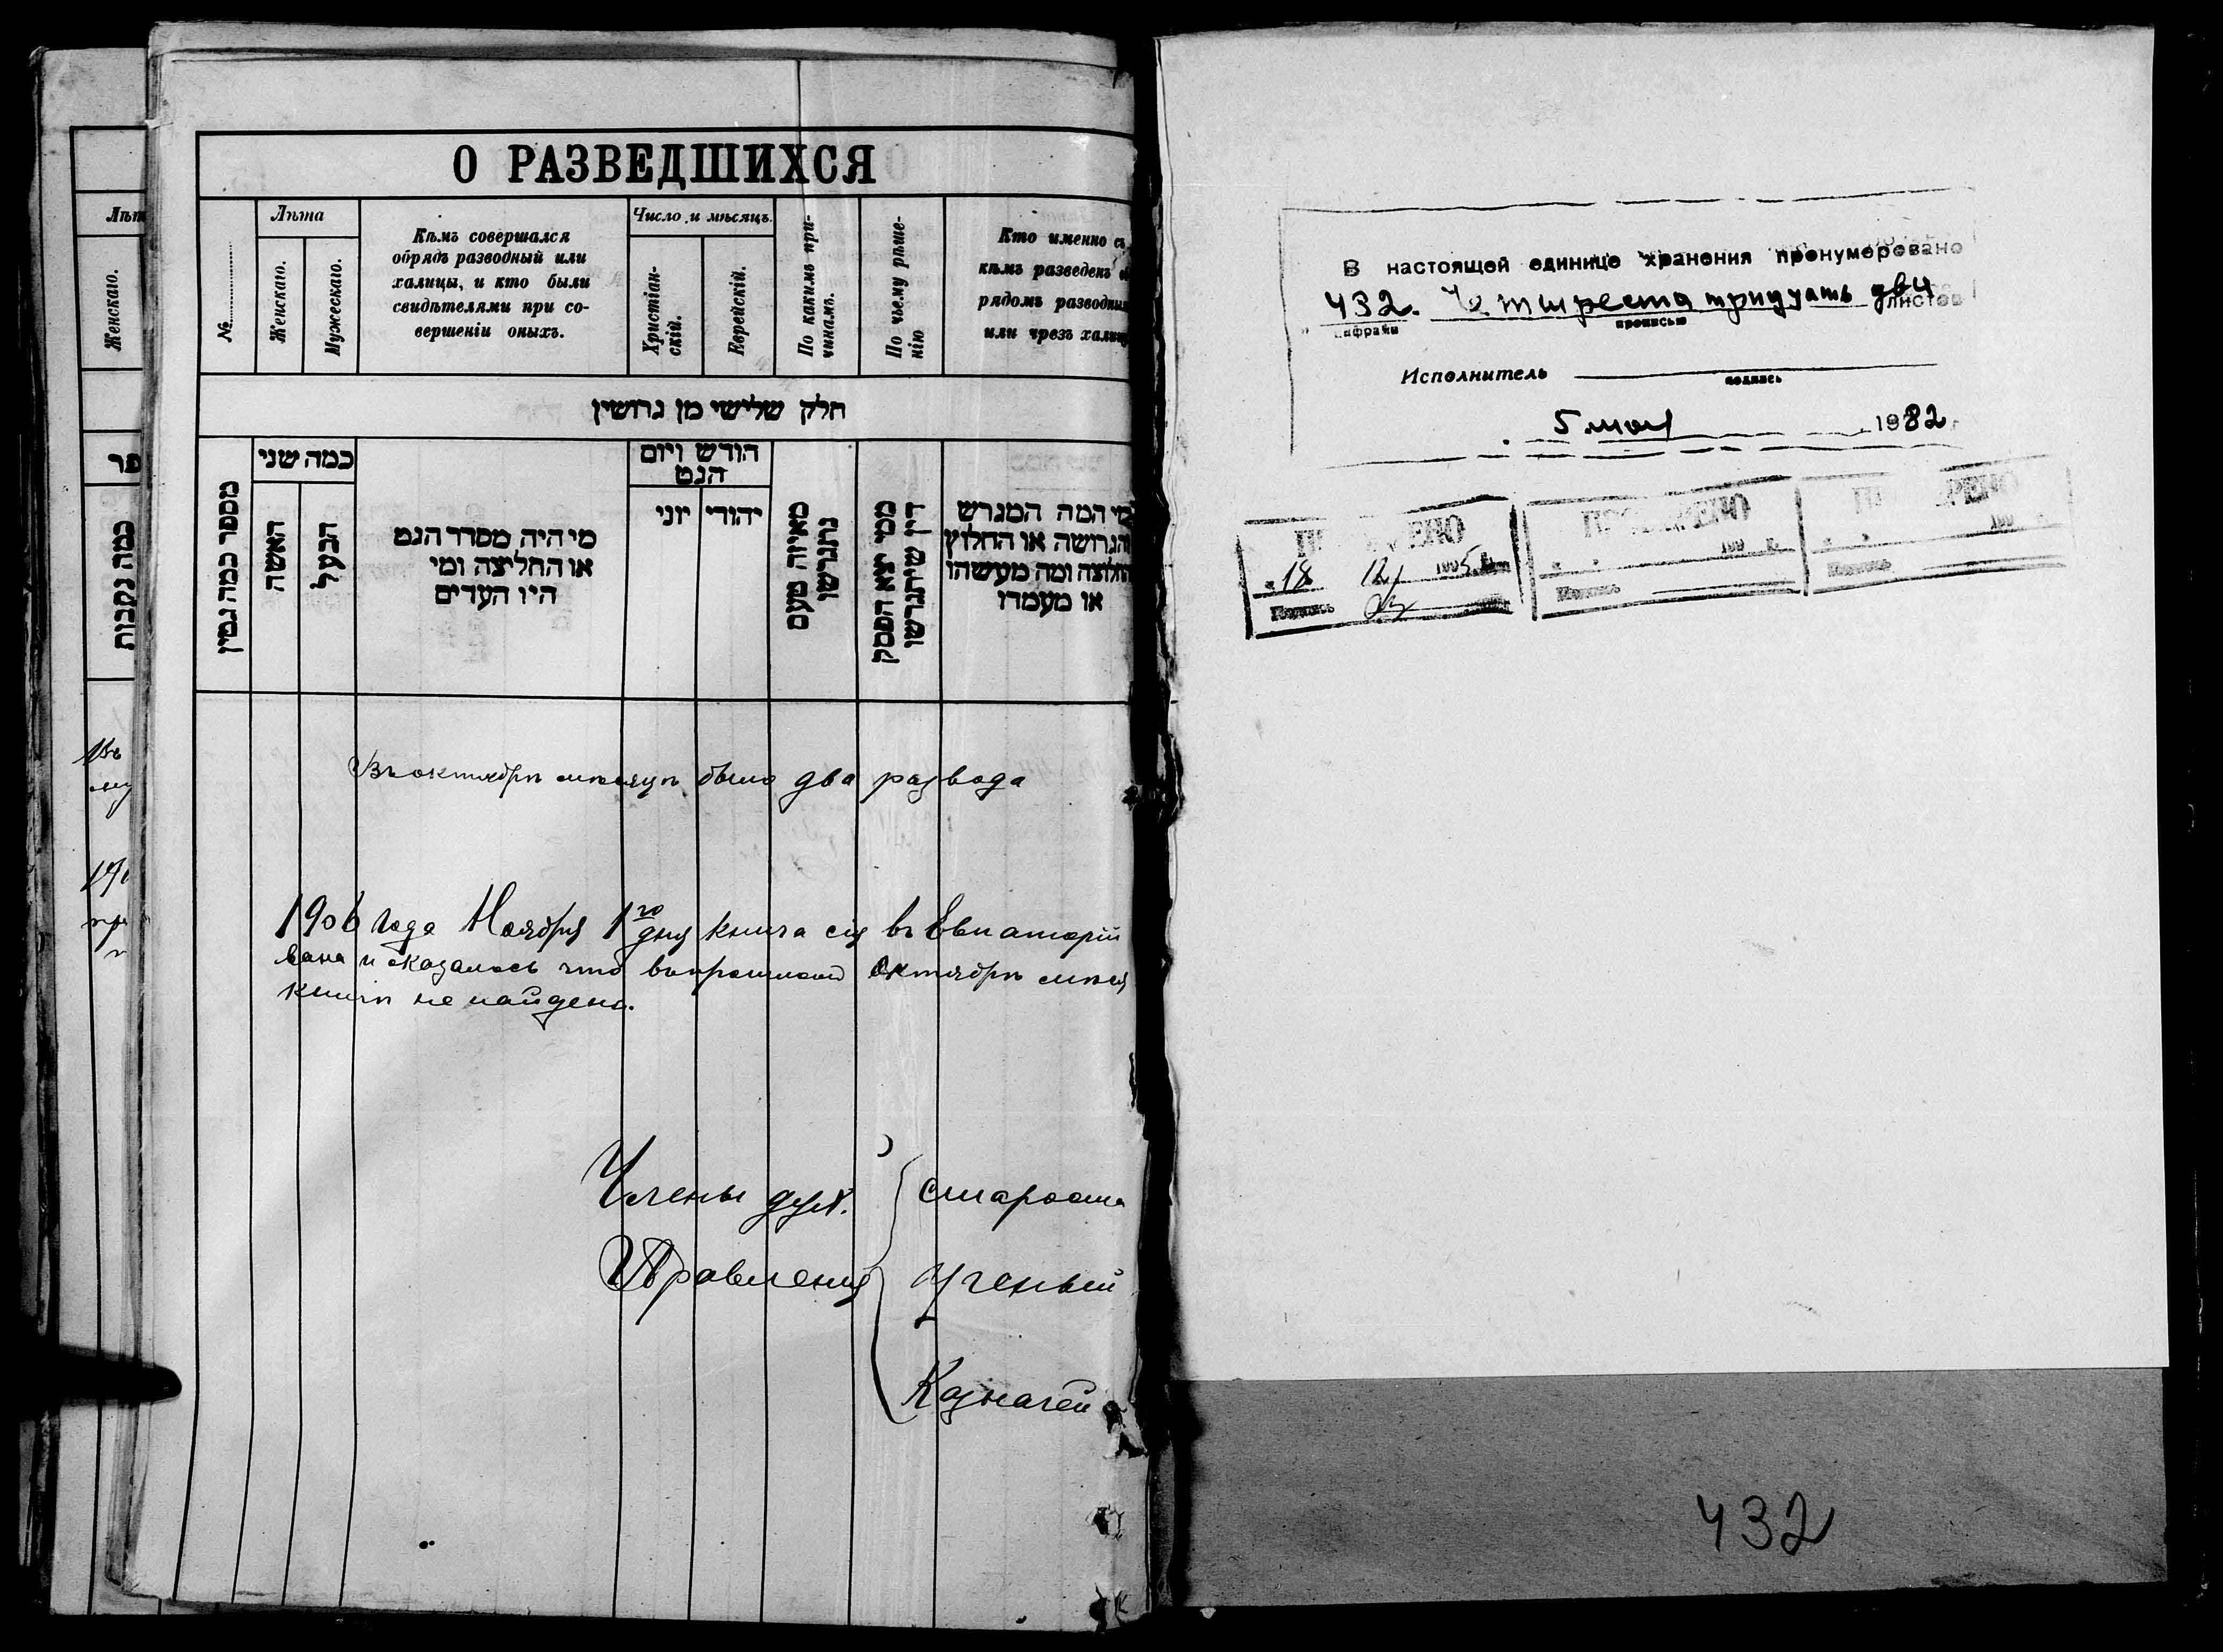 Лѣт
Женскаго.
פר
כמה נקבות
О РАЗВЕДШИХСЯ
№
Лѣта
Женскаго.
Мужескаго.
Кѣмъ совершался
обрядъ разводный или
халицы, и кто были
свидѣтелями при со-
вершеніи оныхъ.
Число и мѣсяцъ.
Христіан-
скій.
Еврейскій.
По какимъ при-
чинамъ.
По чьему рѣше-
нію
Кто именно съ
кѣмъ разведенъ о
рядомъ разводны
или чрезъ халиц
חלק שלישי מן גרושין
מספר כמה גטין
כמה שני
האשה
הבעל
מי היה מסדר הגט
או החליצה ומי
היו העדים
הודש ויום
הגט
יוני
יהודי
מאיזה טעם
נתגרשו
ממי יצא הפסק
דין שיתגרשו
מי המה המגרש
והגרושה או החלוץ
והחלוצה ומה מעשהו
או מעמדו
Въ октябрѣ мѣсяцѣ было два развода
1906 года Ноября 1го дня книга сія въ Евпаторій
вана и оказалось что въ прошломъ Октябрѣ мѣся
книгѣ не найдено.
Члены дух.
Правленія
Староста
Ученый
Казначей
В настоящей единице хранения пронумеровано
432. Четыреста тридцать два листов
цифрами
прописью
Исполнитель
подпись
5 мая 1982
ПРОВЕРЕНО
18 12 1995 г.
Подпись
ПРОВЕРЕНО
199 г.
Подпись
ПРОВЕРЕНО
199 г.
Подпись
432